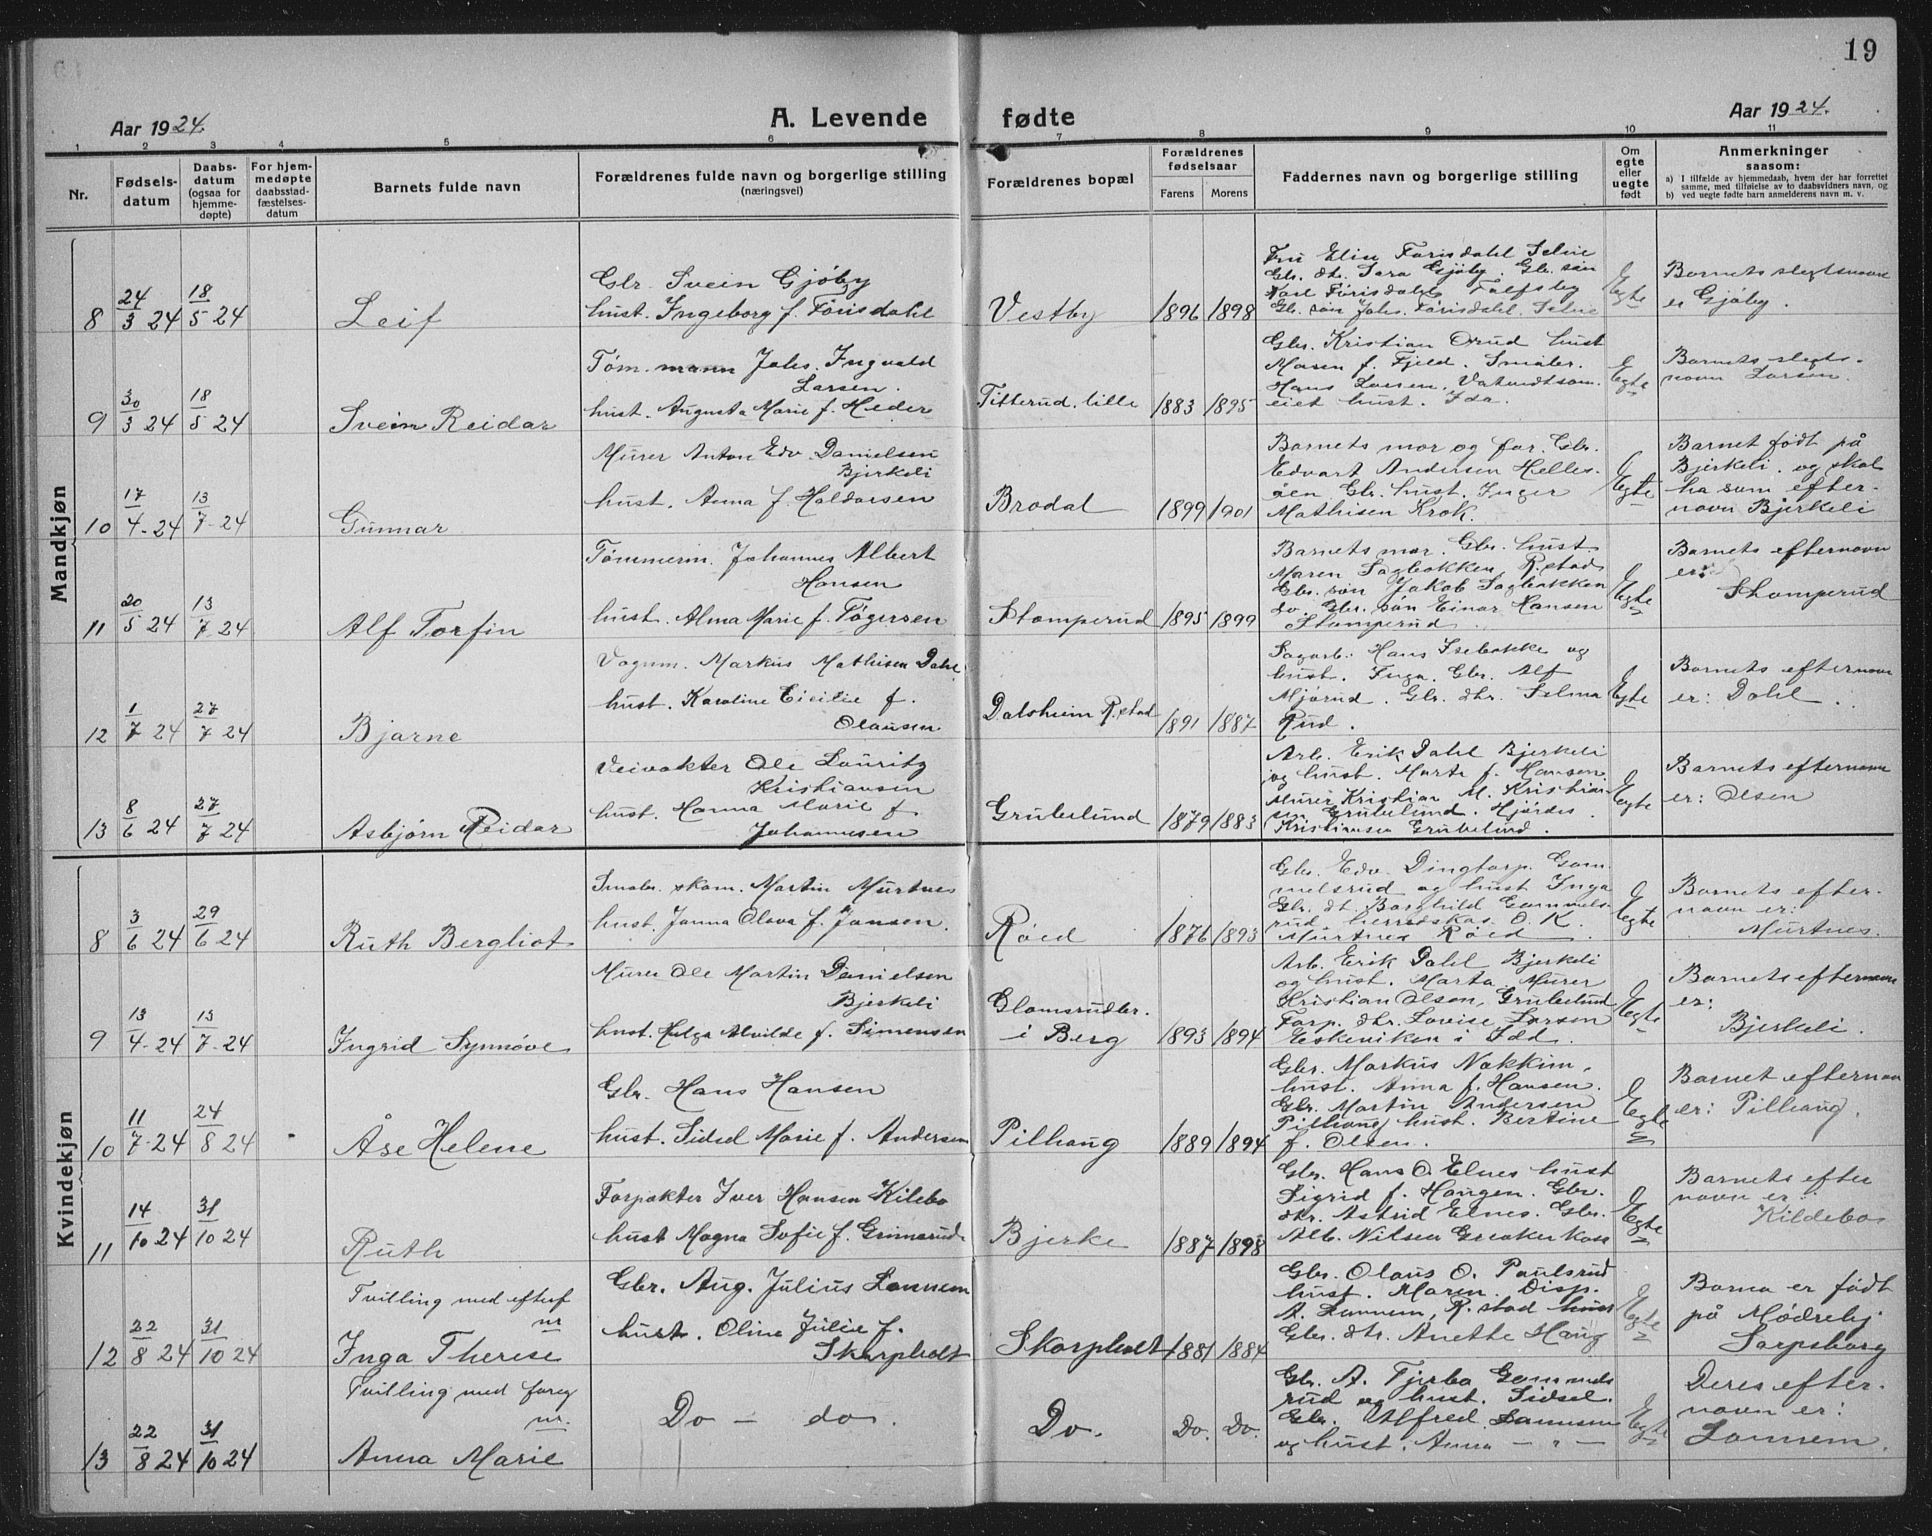 19
Aar 1924.
A. Levende fødte
Aar 1924.
1 2 3 4 5 6 7 8 9 10 11
Nr.
Fødsels-
datum
Daabs-
datum
(ogsaa for
hjemme-
døpte)
For hjem-
medøpte
daabsstad-
fæstelses-
datum
Barnets fulde navn
Forældrenes fulde navn og borgerlige stilling
(næringsvei)
Forældrenes bopæl
Forældrenes
fødselsaar
Farens Morens
Faddernes navn og borgerlige stilling
Om
egte
eller
uegte
født
Anmerkninger
saasom:
a) I tilfælde av hjemmedaab, hvem der har forrettet
samme, med tilføielse av to daabsvidners navn, og
b) ved uegte fødte barn anmelderens navn m. v.
Mandkjøn
8 24/3 24 18/5 24
Leif
Gbr. Svein Gjøby
hust. Ingeborg f. Tørisdahl
Vestby
1896 1898
Fru Elise Sara Gjøby. Gbr. søn
Egte
Barnets slegtsnavn
er Gjøby.
9 30/3 24 18/5 24
Svein Reidar
Tøm. mann Johs. Ingvald
Larsen.
hust. Augusta Marie f. Heder
Titterud. lille
1883 1895
Gbr. Kristian Ørud hust
Maren f. Fjeld. Småbr.
Hans Larsen,
eiet hust. Ida.
Egte
Barnets slegts-
navn Larsen.
10 17/4-24 13/7-24
Gunnar
Murer Anton Edv. Danielsen
Bjerkeli
hust. Anna f. Haldorsen
Brodal
1899 1901
Barnets mor og far. Gbr.
Edvart Andersen Helles-
åen. Gbr. hust. Inger
Mathisen Krok.
Egte
Barnet født på
Bjerkeli. og skal
ha som efter-
navn Bjerkeli
11 20/5 24 13/7 24
Alf Torfin
Tømmerm. Johannes Albert
Hansen
hust. Alma Marie f. Tøgersen
Stomperud
1895 1899
Barnets mor. Gbr. hust
Maren Sagbakken, R.stad
Gbr. søn Jakob Sagbakken
do. Gbr. søn Einar Hansen
Stomperud.
Egte
Barnets efternavn
er:
Stomperud
12 1/7 24 27/7 24
Bjarne
Vognm. Markus Mathisen Dahl
hust. Karoline Cicilie f.
Olausen
Dalsheim R.stad
1891 1887
Sagarb. Hans Isebakke og
hust. Inga. Gbr. Alf
Mjørud. Gbr. dtr. Selma
Rud.
Egte
Barnets efternavn
er: Dahl.
13 8/6 24 27/7 24
Asbjørn Reidar
Veivokter Ole Lauritz
Kristiansen
hust. Hanna Marie f
Johannesen
Grubelund
1879 1883
Arb. Erik Dahl Bjerkeli
og hust. Marte f. Hansen.
Murer Kristian M. Kristian-
sen Grubelund. Hjørdes
Kristiansen Grubelund.
Egte
Barnets efternavn
er: Olsen
Kvindekjøn
8 3/6 24 29/6 24
Ruth Bergliot
Smabr. skom. Martin Murtnes
hust. Janna Olava f. Jansen.
Røed
1876 1893
Gbr. Edv. Dingtorp. Gam-
melsrud og hust Inga
Gbr. dt. Borghild Gammels-
rud, herredskas. O. K.
Murtnes Røed.
Egte
Barnets efter-
navn er:
Murtnes.
9 13/4-24 13/7-24
Ingrid Synnøve
Murer Ole Martin Danielsen
Bjerkeli
hust. Helga Alvilde f. Simensen
Glomsrudbr.
i Berg
1893 1894
Arb. Erik Dahl Bjerkeli
og hust. Marta, Murer
Kristian Olsen, Grubelund
Forp. dtr. Lovise Larsen
Eskeviken i Idd.
Egte
Barnets efternavn
er:
Bjerkeli.
10 11/7-24 24/8 24
Åse Helene
Gbr. Hans Hansen
hust. Sidsel Marie f. Andersen
Pilhaug
1889 1894
Gbr. Markus Nokkim,
hust. Anna f. Hansen.
Gbr. Martin Andersen
Pilhaug, hust. Bertine
f. Olsen.
Egte
Barnet efternavn
er: Pilhaug.
11 14/10 24 31/10 24
Ruth
Forpakter Iver Hansen Kilebo
hust Magna Sofie f. Grimsrud.
Bjerke
1887 1898
Gbr. Hans O. Elnes hust
Sigrid f. Haugen. Gbr.
dtr. Astrid Elnes. Gbr.
Alb. Nilsen Greaker
Egte
Barnets efter
navn er:
Kildebo
12 22/8 24 31/10 24
Tvilling med efterf
nr
Inga Therese
Gbr. Aug. Julius Lannem
hust. Oline Julie f.
Skorpholdt
Skorpholdt
1881 1884
Gbr. Olaus O. Paulsrud
hust. Maren. Disp.
A. Lannem, R.stad
Gbr. dtr. Anette Haug
Egte
Barna er født
på Mødrehj
Sarpsborg
13 22/8 24 31/10 24
Tvilling med foreg
nr.
Anna Marie
Do - do.
Do.
Do. Do.
Gbr. A. Fjerbo Gammels
rud og hust. Sidsel.
Gbr. Alfred Lannem
og hust. Anna - " -
Egte
Deres efter-
navn er:
Lannem.